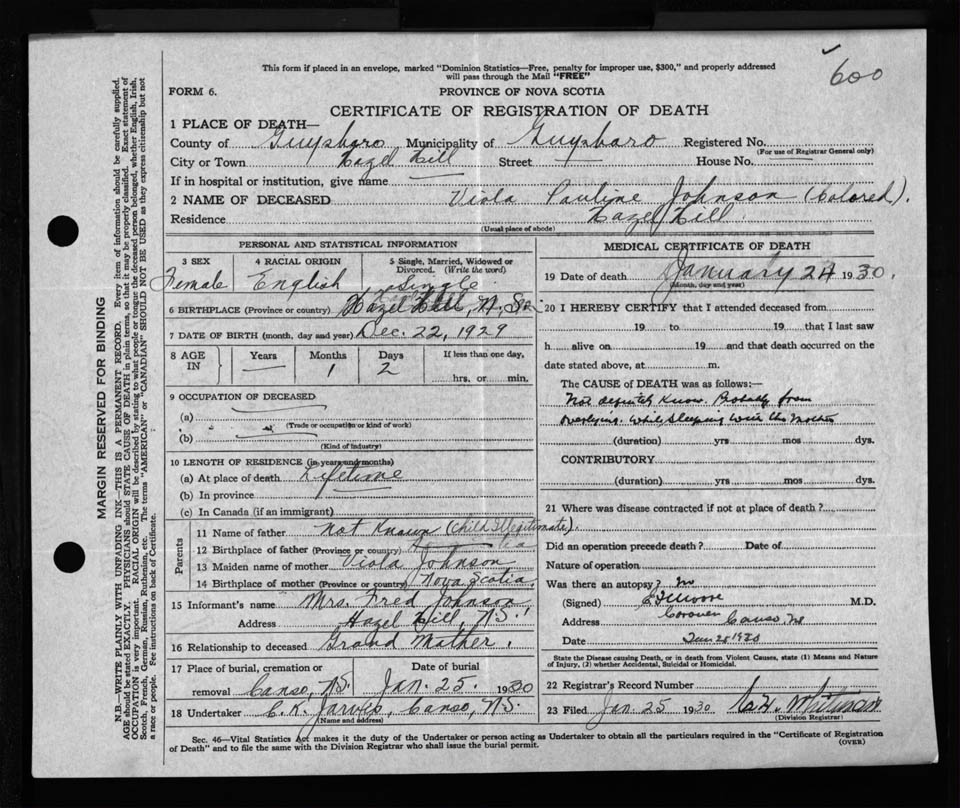 600
This form if placed in an envelope, marked "Dominion Statistics—Free, penalty for improper use, $300," and properly addressed
will pass through the Mail "FREE"
FORM 6.
PROVINCE OF NOVA SCOTIA
CERTIFICATE OF REGISTRATION OF DEATH
1 PLACE OF DEATH—
County of Guysboro Municipality of Guysboro Registered No.
(For use of Registrar General only)
City or Town Hazel Hill Street — House No. —
If in hospital or institution, give name —
2 NAME OF DECEASED Viola Pauline Johnson (Colored).
Residence Hazel Hill
(Usual place of abode)
PERSONAL AND STATISTICAL INFORMATION
3 SEX Female
4 RACIAL ORIGIN English
5 Single, Married, Widowed or
Divorced. (Write the word)
Single
6 BIRTHPLACE (Province or country) Hazel Hill, N.S.
7 DATE OF BIRTH (month, day and year) Dec. 22, 1929
8 AGE IN Years — Months 1 Days 2 If less than one day,
hrs. or min.
9 OCCUPATION OF DECEASED
(a)
(Trade or occupation or kind of work)
(b)
(Kind of industry)
10 LENGTH OF RESIDENCE (in years and months)
(a) At place of death Lifetime
(b) In province
(c) In Canada (if an immigrant)
Parents
11 Name of father Not Known (Child Illegitimate).
12 Birthplace of father (Province or country)
13 Maiden name of mother Viola Johnson
14 Birthplace of mother (Province or country) Nova Scotia
15 Informant's name Mrs. Fred Johnson
Address Hazel Hill, N.S.
16 Relationship to deceased Grand Mother.
17 Place of burial, cremation or
removal Canso, N.S.
Date of burial
Jan. 25 1930
18 Undertaker C. K. Jarvis, Canso, N.S.
(Name and address)
MEDICAL CERTIFICATE OF DEATH
19 Date of death January 24 1930.
(Month, day and year)
20 I HEREBY CERTIFY that I attended deceased from
19 to 19 that I last saw
h alive on 19 and that death occurred on the
date stated above, at m.
The CAUSE of DEATH was as follows:—
Not definitely Know. Probably from
overlying. While sleeping with the Mother
(duration) yrs mos dys.
CONTRIBUTORY
(duration) yrs mos dys.
21 Where was disease contracted if not at place of death?
Did an operation precede death? Date of
Nature of operation
Was there an autopsy? no
(Signed) Moore M.D.
Coroner
Address Canso NS
Date Jan 28 1930
State the Disease causing Death, or in death from Violent Causes, state (1) Means and Nature
of Injury, (2) whether Accidental, Suicidal or Homicidal.
22 Registrar's Record Number
23 Filed Jan. 25 1930 Whitman
(Division Registrar)
Sec. 46—Vital Statistics Act makes it the duty of the Undertaker or person acting as Undertaker to obtain all the particulars required in the "Certificate of Registration
of Death" and to file the same with the Division Registrar who shall issue the burial permit.
(OVER)
MARGIN RESERVED FOR BINDING
N.B.—WRITE PLAINLY WITH UNFADING INK—THIS IS A PERMANENT RECORD. Every item of information should be carefully supplied.
AGE should be stated EXACTLY. PHYSICIANS should STATE CAUSE OF DEATH in plain terms, so that it may be properly classified. Exact statement of
OCCUPATION is very important. RACIAL ORIGIN will be described by stating to what people or tongue the deceased person belonged, whether English, Irish,
Scotch, French, German, Russian, Ruthenian, etc. The terms "AMERICAN" or "CANADIAN" SHOULD NOT BE USED as they express citizenship but not
a race or people. See instructions on back of Certificate.